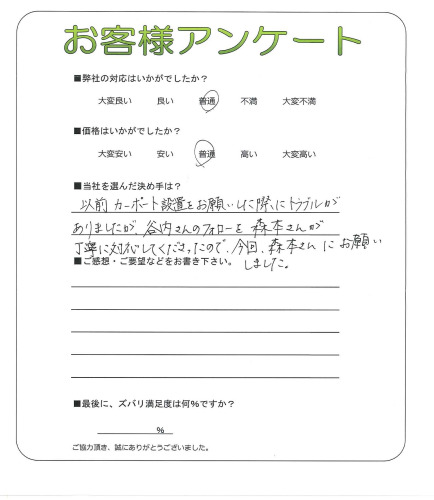 お客様アンケート
■弊社の対応はいかがでしたか？
大変良い 良い 普通 不満 大変不満
■価格はいかがでしたか？
大変安い 安い 普通 高い 大変高い
■当社を選んだ決め手は？
以前カーポート設置をお願いした際にトラブルが
ありましたが、谷内さんのフォローを森本さんが
丁寧に対応してくださったので、今回、森本さんにお願い
しました。
■ご感想・ご要望などをお書き下さい。
■最後に、ズバリ満足度は何%ですか？
%
ご協力頂き、誠にありがとうございました。